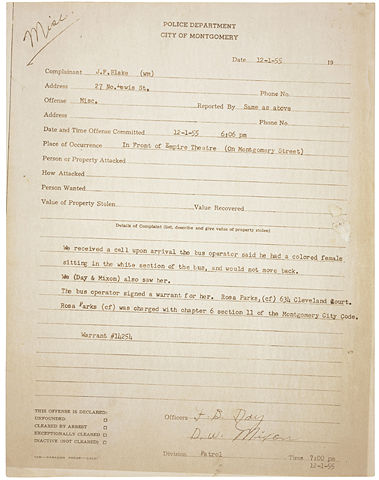 Misc.
POLICE DEPARTMENT
CITY OF MONTGOMERY
Date 12-1-55 19
Complainant J.F.Blake (wm)
Address 27 No.Lewis St. Phone No.
Offense Misc. Reported By Same as above
Address Phone No.
Date and Time Offense Committed 12-1-55 6:06 pm
Place of Occurrence In Front of Empire Theatre (On Montgomery Street)
Person or Property Attacked
How Attacked
Person Wanted
Value of Property Stolen Value Recovered
Details of Complaint (list, describe and give value of property stolen)
We received a call upon arrival the bus operator said he had a colored female
sitting in the white section of the bus, and would not move back.
We (Day & Mixon) also saw her.
The bus operator signed a warrant for her. Rosa Parks,(cf) 634 Cleveland Court.
Rosa Parks (cf) was charged with chapter 6 section 11 of the Montgomery City Code.
Warrant #14254
THIS OFFENSE IS DECLARED:
UNFOUNDED
CLEARED BY ARREST
EXCEPTIONALLY CLEARED
INACTIVE (NOT CLEARED)
Officers F. B. Day
D. W. Mixon
Division Patrol
Time 7:00 pm
12-1-55